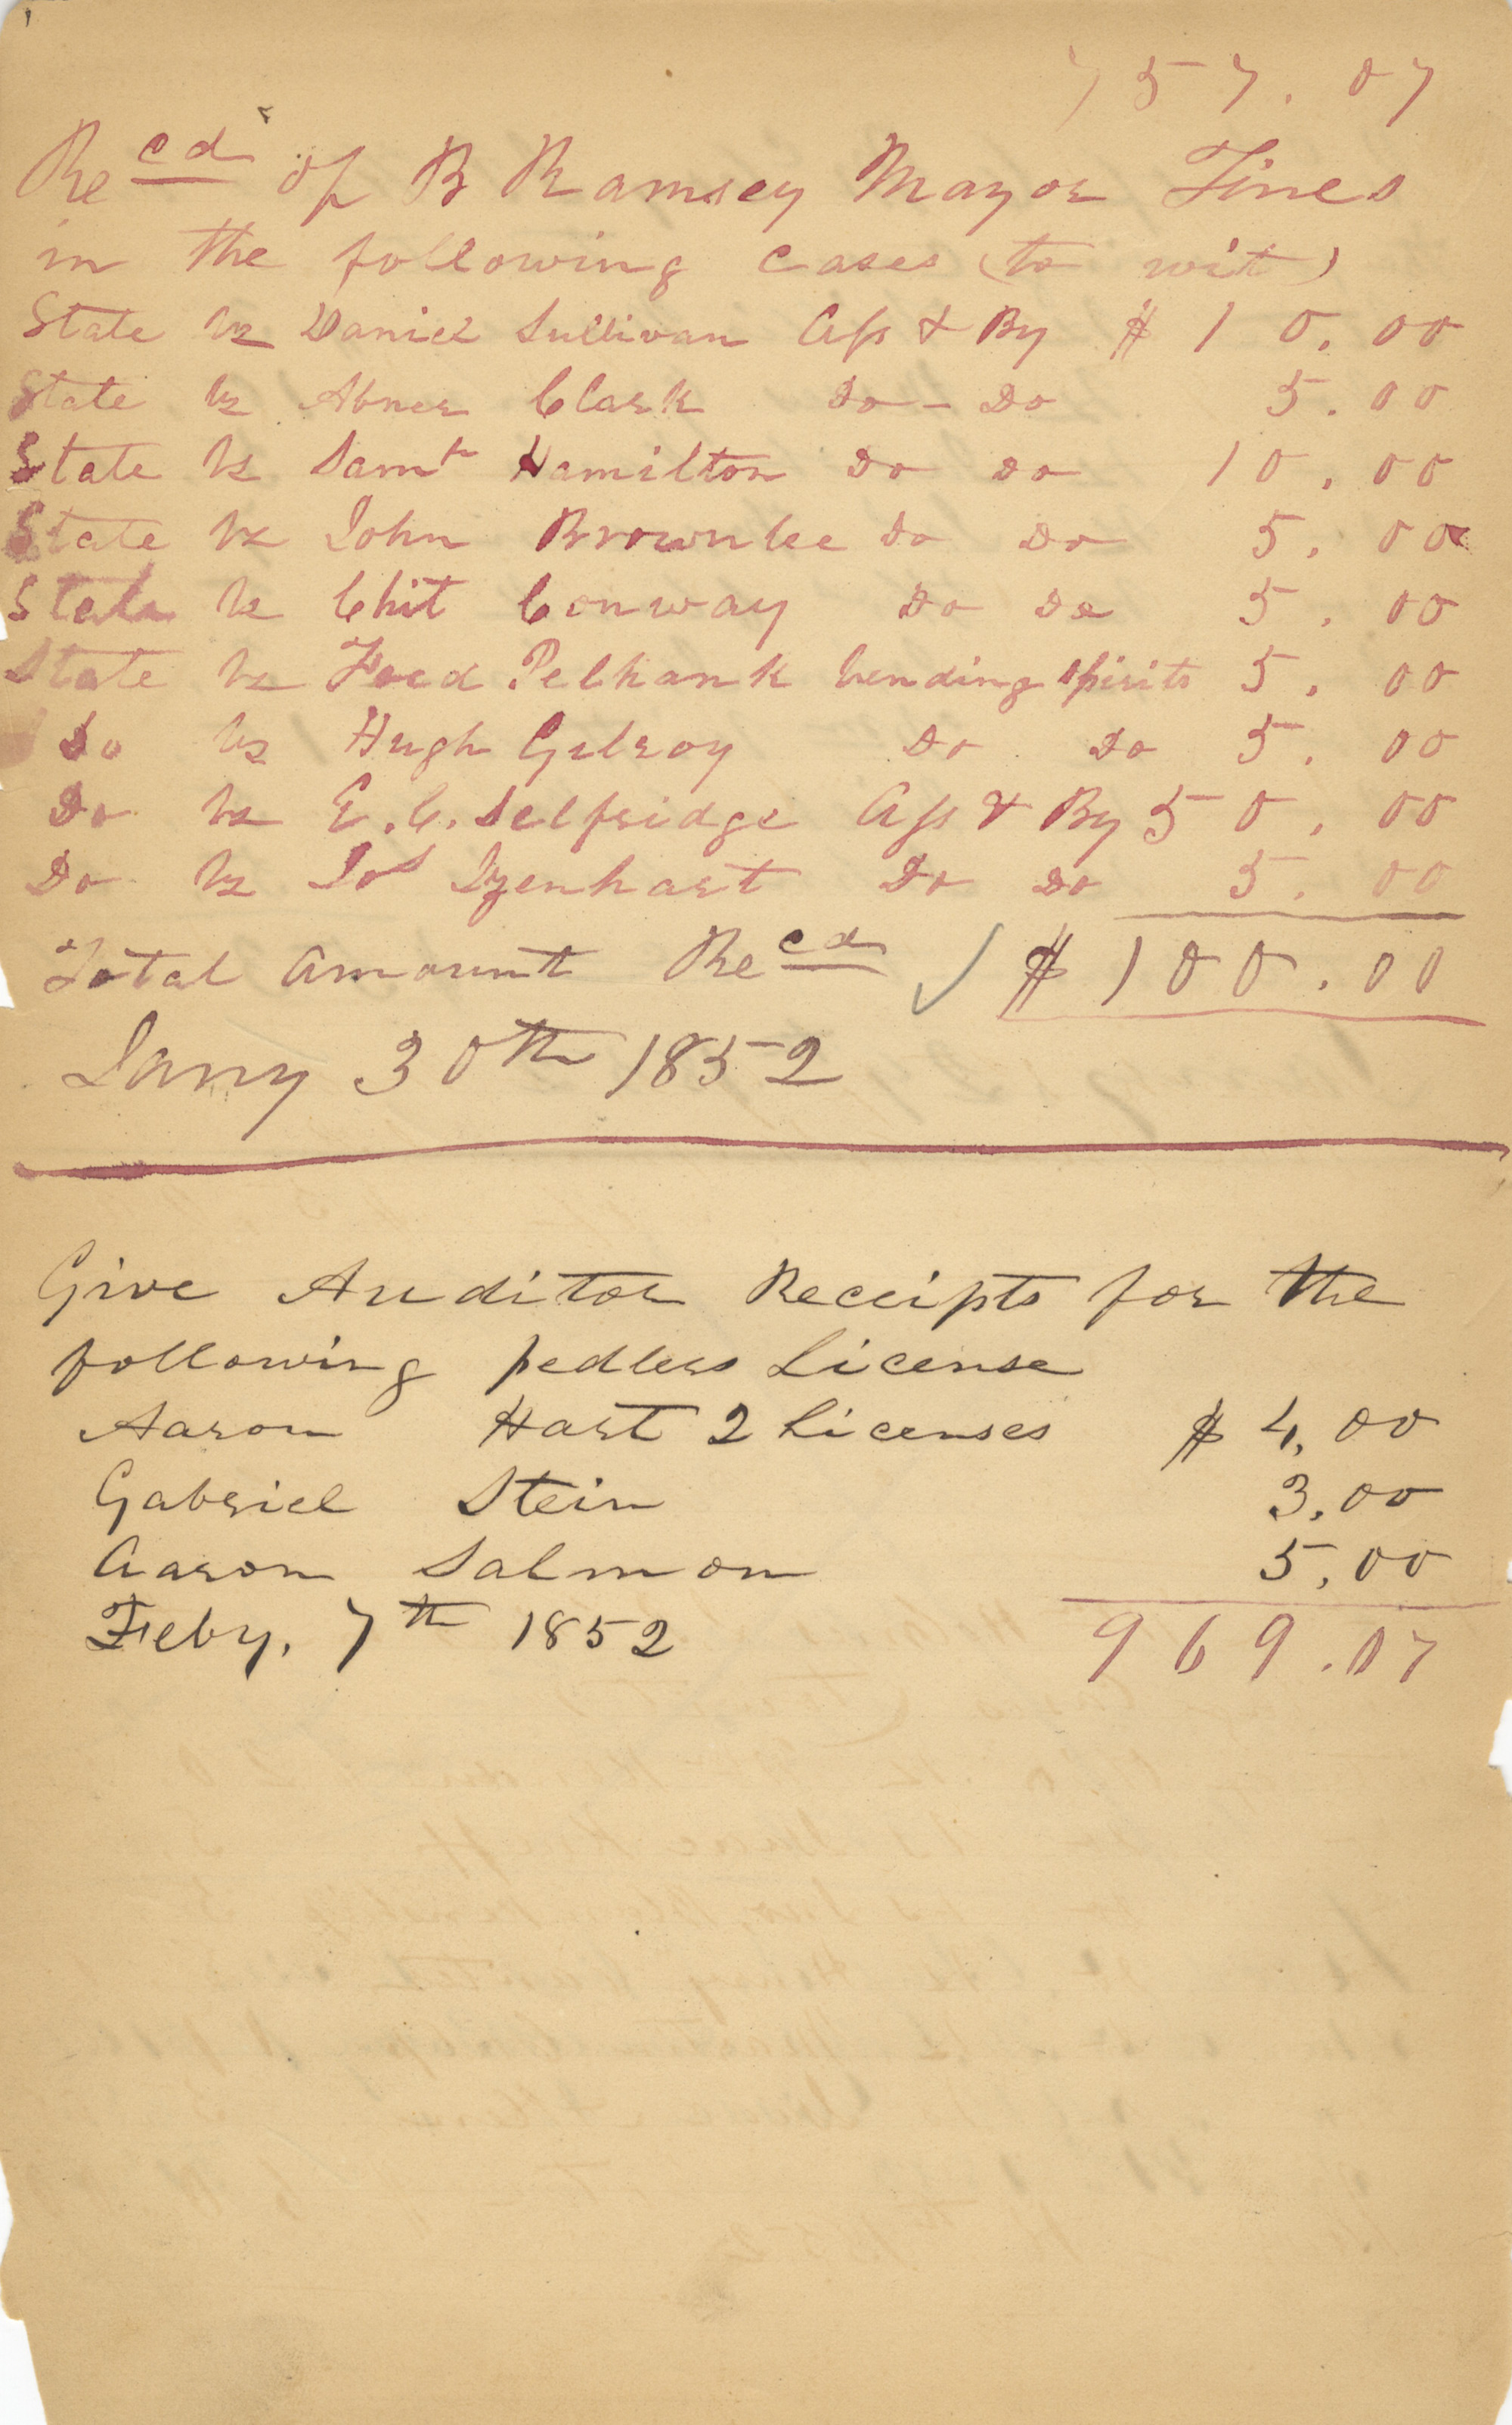 757.07
Recd of B Ramsey Mayor Fines
in the following cases (to wit)
State vs Daniel Sullivan Ass & By $ 10.00
State vs Abner Clark Do - Do 5.00
State vs Saml Hamilton Do Do 10.00
State vs John Brownlee Do Do 5.00
State vs Chit Conway Do Do 5.00
State vs Fred Pelkank vending spirits 5.00
Do vs Hugh Gilroy Do Do 5.00
Do vs E. C. Selfridge Ass & By 50.00
Do vs Jos Izenhart Do Do 5.00
Total amount Recd $ 100.00
Jany 30th 1852
Give Auditor Receipts for the
following pedlers License
Aaron Hart 2 Licenses $ 4.00
Gabriel Stein 3.00
Aaron Salmon 5.00
Feby. 7th 1852 969.07